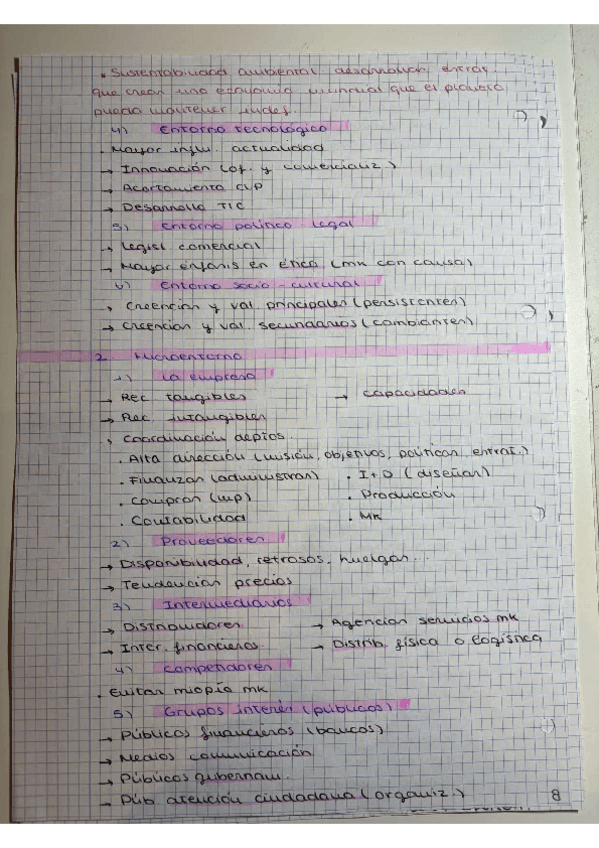 • Sustentabilidad ambiental: desarrollan estrat.
que crean una economía mundial que el planeta
pueda mantener indef.
4) Entorno tecnológico
• Mayor influ. actualidad
→ Innovación (of. y comercializ.)
→ Acortamiento CVP
→ Desarrollo TIC
5) Entorno político-legal
→ Legisl comercial
→ Mayor énfasis en ética (mk con causa)
6) Entorno socio-cultural
→ Creencias y val. principales (persistentes)
→ Creencias y val. secundarios (cambiantes)
2. Microentorno
1) La empresa
→ Rec tangibles → capacidades
→ Rec. intangibles
→ Coordinación deptos.
• Alta dirección (misión, objetivos, políticas, estrat.)
• Finanzas (administran) • I+D (diseñan)
• Compras (mp) • Producción
• Contabilidad • MK
2) Proveedores
→ Disponibilidad, retrasos, huelgas...
→ Tendencias precios
3) Intermediarios
→ Distribuidores → Agencias servicios mk
→ Inter. financieros → Distrib. física o logística
4) Competidores
• Evitar miopía mk
5) Grupos interés (públicos)
→ Públicos financieros (bancos)
→ Medios comunicación
→ Públicos gubernam.
→ Púb. atención ciudadana (organiz.)
8